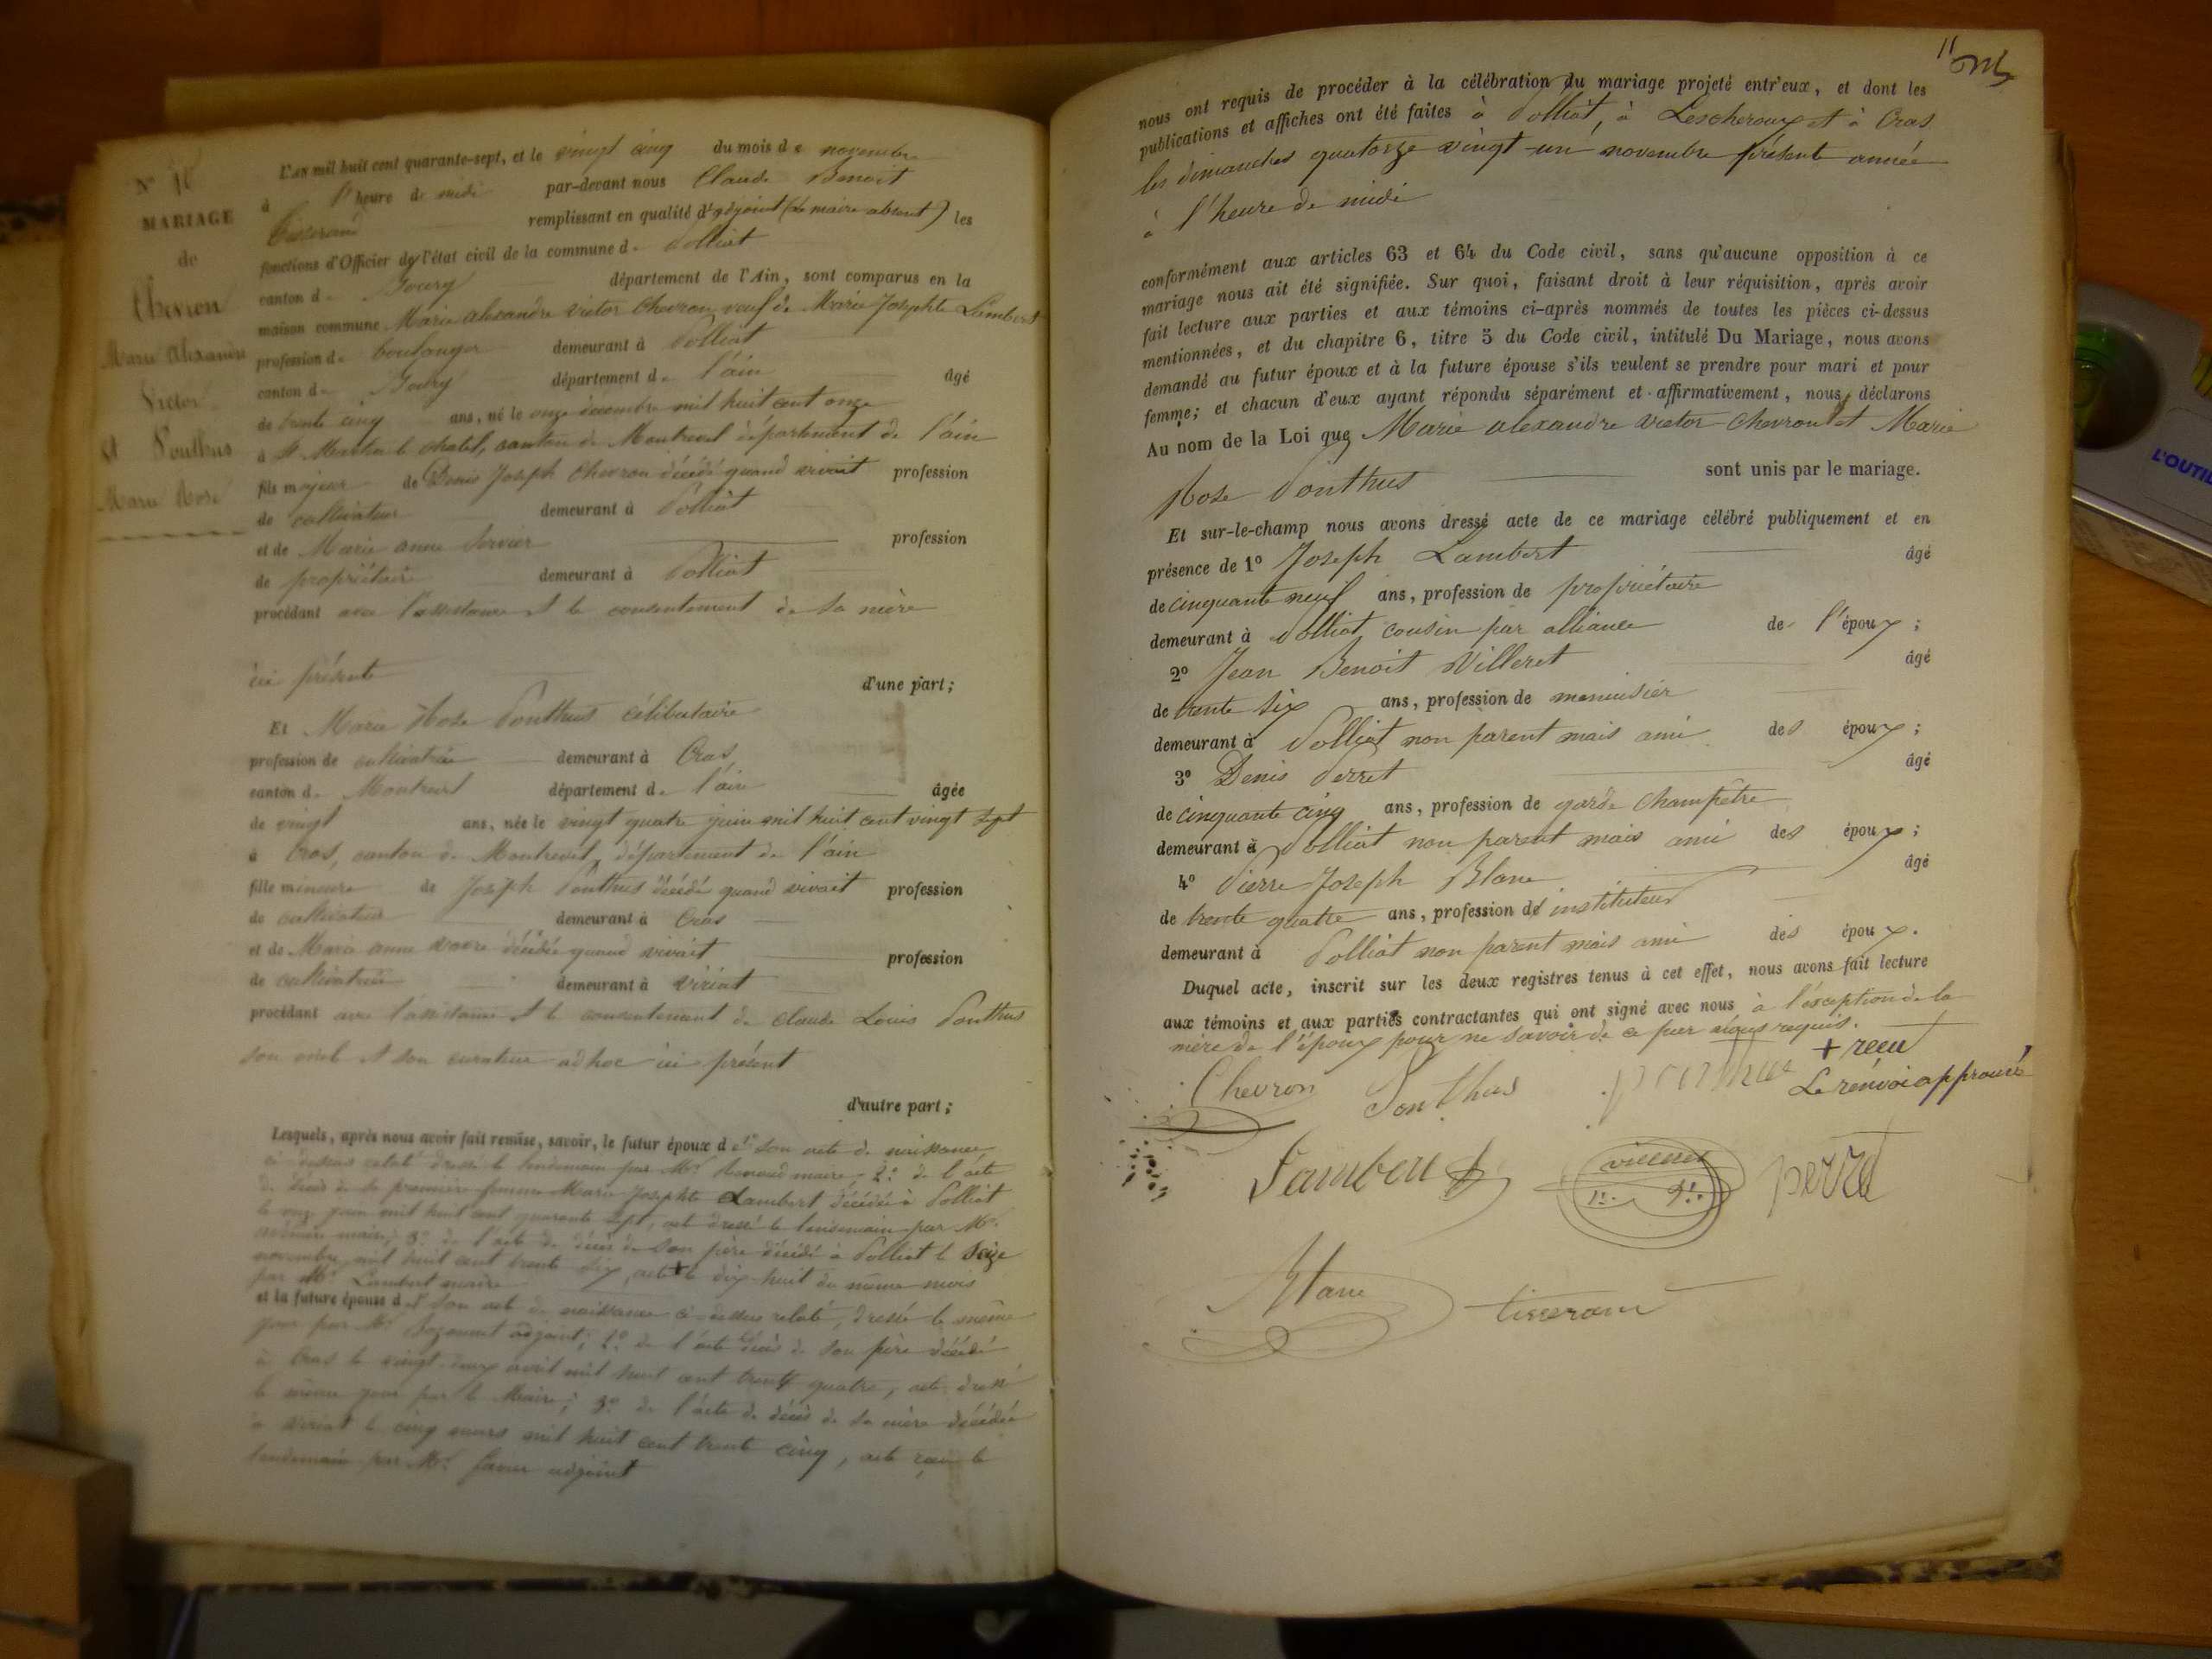 N° 10
MARIAGE
de
Chevron
Marie Alexandre
Victor
et Ponthus
Marie Rose
L'AN mil huit cent quarante-sept, et le vingt cinq du mois de novembre
à l'heure de midi par-devant nous Claude Benoit
Tisserand remplissant en qualité d'adjoint (le maire absent) les
fonctions d'Officier de l'état civil de la commune de Polliat
canton de département de l'Ain, sont comparus en la
maison commune Marie alexandre victor chevron veuf de Marie Josephte Lambert
profession de boulanger demeurant à Polliat
canton de département de l'ain âgé
de trente cinq ans, né le onze décembre mil huit cent onze
à St Martin le chatel, canton de Montrevel département de l'ain
fils majeur de Denis Joseph Chevron décédé quand vivait profession
de cultivateur demeurant à Polliat
et de Marie anne Servier profession
de propriétaire demeurant à Polliat
procédant avec l'assistance et le consentement de sa mère
ici présente d'une part;
Et Marie Rose Ponthus célibataire
profession de cultivatrice demeurant à Cras,
canton de Montrevel département de l'ain âgée
de vingt ans, née le vingt quatre juin mil huit cent vingt sept
à Cras, canton de Montrevel, département de l'ain
fille mineure de Joseph Ponthus décédé quand vivait profession
de cultivateur demeurant à Cras
et de Marie anne décédée quand vivait profession
de cultivatrice demeurant à viriat
procédant avec l'assistance et le consentement de claude Louis Ponthus
son oncle et son curateur ad hoc ici présent
d'autre part;
Lesquels, après nous avoir fait remise, savoir, le futur époux de 1° son acte de naissance
ci dessus relaté dressé le lendemain par Mr. Renaud maire, 2° de l'acte
de décès de sa première femme Marie Josephte Lambert, décédée à Polliat
le onze juin mil huit cent quarante sept, acte dressé le lendemain par Mr.
maire; 3° de l'acte de décès de son père décédé à Polliat le seize
novembre mil huit cent trente six, acte + le dix huit du même mois
par Mr. Lambert maire
et la future épouse de 1° son acte de naissance ci-dessus relaté, dressé le même
jour par Mr. adjoint; 2° de l'acte décès de son père décédé
à Cras le vingt deux avril mil huit cent trente quatre, acte dressé
le même jour par le Maire; 3° de l'acte de décès de sa mère décédée
à viriat le cinq mars mil huit cent trente cinq, acte reçu le
lendemain par Mr. adjoint
11
nous ont requis de procéder à la célébration du mariage projeté entr'eux, et dont les
publications et affiches ont été faites à Polliat, à Lescheroux et à Cras
les dimanches quatorze vingt-un novembre présente année
à l'heure de midi
conformément aux articles 63 et 64 du Code civil, sans qu'aucune opposition à ce
mariage nous ait été signifiée. Sur quoi, faisant droit à leur réquisition, après avoir
fait lecture aux parties et aux témoins ci-après nommés de toutes les pièces ci-dessus
mentionnées, et du chapitre 6, titre 5 du Code civil, intitulé Du Mariage, nous avons
demandé au futur époux et à la future épouse s'ils veulent se prendre pour mari et pour
femme; et chacun d'eux ayant répondu séparément et affirmativement, nous déclarons
Au nom de la Loi que Marie alexandre victor chevron et Marie
Rose Ponthus sont unis par le mariage.
Et sur-le-champ nous avons dressé acte de ce mariage célébré publiquement et en
présence de 1° Joseph Lambert âgé
de cinquante neuf ans, profession de propriétaire
demeurant à Polliat cousin par alliance de l'époux;
2° Jean Benoit Villeret âgé
de trente six ans, profession de menuisier
demeurant à Polliat non parent mais ami des époux;
3° Denis Perret âgé
de cinquante cinq ans, profession de garde champêtre
demeurant à Polliat non parent mais ami des époux;
4° Pierre Joseph Blanc âgé
de trente quatre ans, profession d' instituteur
demeurant à Polliat non parent mais ami des époux.
Duquel acte, inscrit sur les deux registres tenus à cet effet, nous avons fait lecture
aux témoins et aux parties contractantes qui ont signé avec nous à l'exception de la
mère de l'époux pour ne savoir de ce requis.
+ reçu
Le renvoi approuvé
Chevron Ponthus ponthus
Lambert villeret perret
Blanc tisserand
L'OUTIL